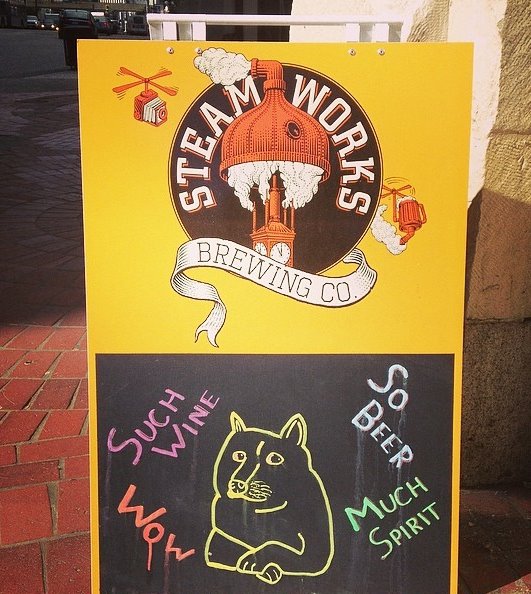 STEAM WORKS
BREWING CO.
SUCH
WINE
SO
BEER
WOW
MUCH
SPIRIT